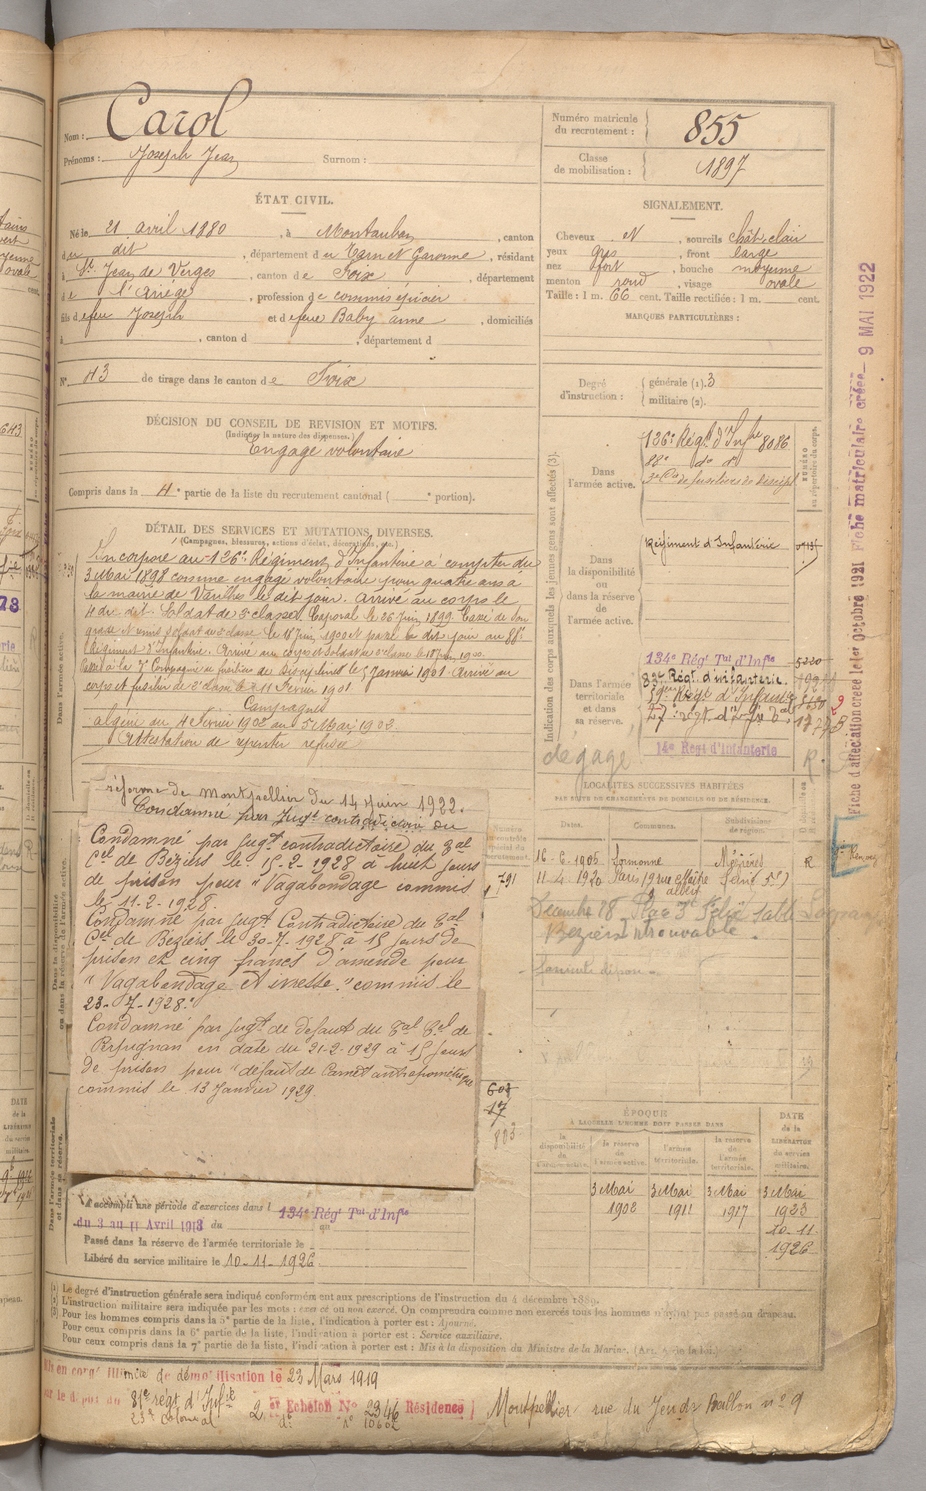 Nom : Carol
Prénoms : Joseph Jean Surnom :
Numéro matricule du recrutement : 855
Classe de mobilisation : 1897
ÉTAT CIVIL.
Né le 21 avril 1880, à Montauban, canton
du dit, département de Tarn et Garonne, résidant
à St Jean de Verges, canton de Foix, département
de l'Ariège, profession de commis épicier
fils de feu Joseph et de feue Baby Anne, domiciliés
à , canton d , département d
N° 43 de tirage dans le canton de Foix
DÉCISION DU CONSEIL DE REVISION ET MOTIFS.
(Indiquer la nature des dispenses.)
Engagé volontaire
Compris dans la 4e partie de la liste du recrutement cantonal ( e portion).
DÉTAIL DES SERVICES ET MUTATIONS DIVERSES.
(Campagnes, blessures, actions d'éclat, décorations, etc.)
Incorporé au 126e Régiment d'Infanterie à compter du
3 Mai 1898 comme engagé volontaire pour quatre ans à
la mairie de Varilhes le dit jour. Arrivé au corps le
4 du dit. Soldat de 2e classe. Caporal le 26 juin 1899. Cassé de son
grade et remis soldat de 2e classe le 18 juin 1900 et passé le dit jour au 88e
Régiment d'Infanterie. Arrivé au corps et soldat de 2e classe le 18 juin 1900.
Passé à la 3e Compagnie de fusiliers de discipline le 5 Janvier 1901. Arrivé au
corps et fusilier de 2e classe le 11 Février 1901.
Campagnes
Algérie du 4 Février 1902 au 5 Mai 1902
Attestation de repentir refusée
réforme de Montpellier du 14 juin 1922.
Condamné par Jugt contradictoire du
Condamné par jugt contradictoire du Bal
Cel de Béziers le 15-2-1928 à huit jours
de prison pour "Vagabondage commis
le 11-2-1928.
Condamné par jugt Contradictoire du Bal
Cel de Béziers le 30-7-1928 à 15 jours de
prison et cinq francs d'amende pour
"Vagabondage et ivresse." commis le
23-7-1928.
Condamné par jugt de défaut du Bal Cel de
Perpignan en date du 21-2-1929 à 15 jours
de prison pour "défaut de Carnet anthropométrique
commis le 13 Janvier 1929
A accompli une période d'exercices dans l 134e Régt Tal d'Infie
du 3 au 11 Avril 1913 du au
Passé dans la réserve de l'armée territoriale le
Libéré du service militaire le 10-11-1926
SIGNALEMENT.
Cheveux N, sourcils chât clair
yeux gris, front large
nez fort, bouche moyenne
menton rond, visage ovale
Taille : 1 m. 66 cent. Taille rectifiée : 1 m. cent.
MARQUES PARTICULIÈRES :
Degré d'instruction : générale (1). 3
militaire (2).
Indication des corps auxquels les jeunes gens sont affectés (3).
NUMÉRO au répertoire du corps.
Dans l'armée active.
126e Régt d'Infie 8086
88e do do
3e Cie de fusiliers de discipl
Dans la disponibilité ou dans la réserve de l'armée active.
Régiment d'Infanterie
Dans l'armée territoriale et dans sa réserve.
134e Régt Tal d'Infie 5220
Régt d'infanterie.
Régt d'Infanterie
14e Régt d'Infanterie
dégagé R
LOCALITÉS SUCCESSIVES HABITÉES
PAR SUITE DE CHANGEMENTS DE DOMICILE OU DE RÉSIDENCE.
Dates. Communes. Subdivisions de région.
16-6-1905 Lormonne Mézières R
11-4-1920 Paris 19 rue Maître Albert
Décembre 28 Place St Félix
Béziers Introuvable.
603
17
883
ÉPOQUE
À LAQUELLE L'HOMME DOIT PASSER DANS
la disponibilité de l'armée active. la réserve de l'armée active. l'armée territoriale. la réserve de l'armée territoriale.
DATE de la LIBÉRATION du service militaire.
3 Mai 1902 3 Mai 1911 3 Mai 1917 3 Mai 1923
10-11
1926
Fiche d'affectation créée le 1er octobre 1921 Fiche matriculaire créée 9 MAI 1922
(1) Le degré d'instruction générale sera indiqué conformément aux prescriptions de l'instruction du 4 décembre 1889.
(2) L'instruction militaire sera indiquée par les mots : exercé ou non exercé. On comprendra comme non exercés tous les hommes n'ayant pas passé au drapeau.
(3) Pour les hommes compris dans la 5e partie de la liste, l'indication à porter est : Ajourné.
Pour ceux compris dans la 6e partie de la liste, l'indication à porter est : Service auxiliaire.
Pour ceux compris dans la 7e partie de la liste, l'indication à porter est : Mis à la disposition du Ministre de la Marine.
Mis en congé illimité de démobilisation le 23 Mars 1919
sur le dépôt du 81e régt d'Infie 2 er Echelon N° 2346 Résidence Montpellier rue du Jeu de Ballon n° 9
23e Colonial do n° 10602